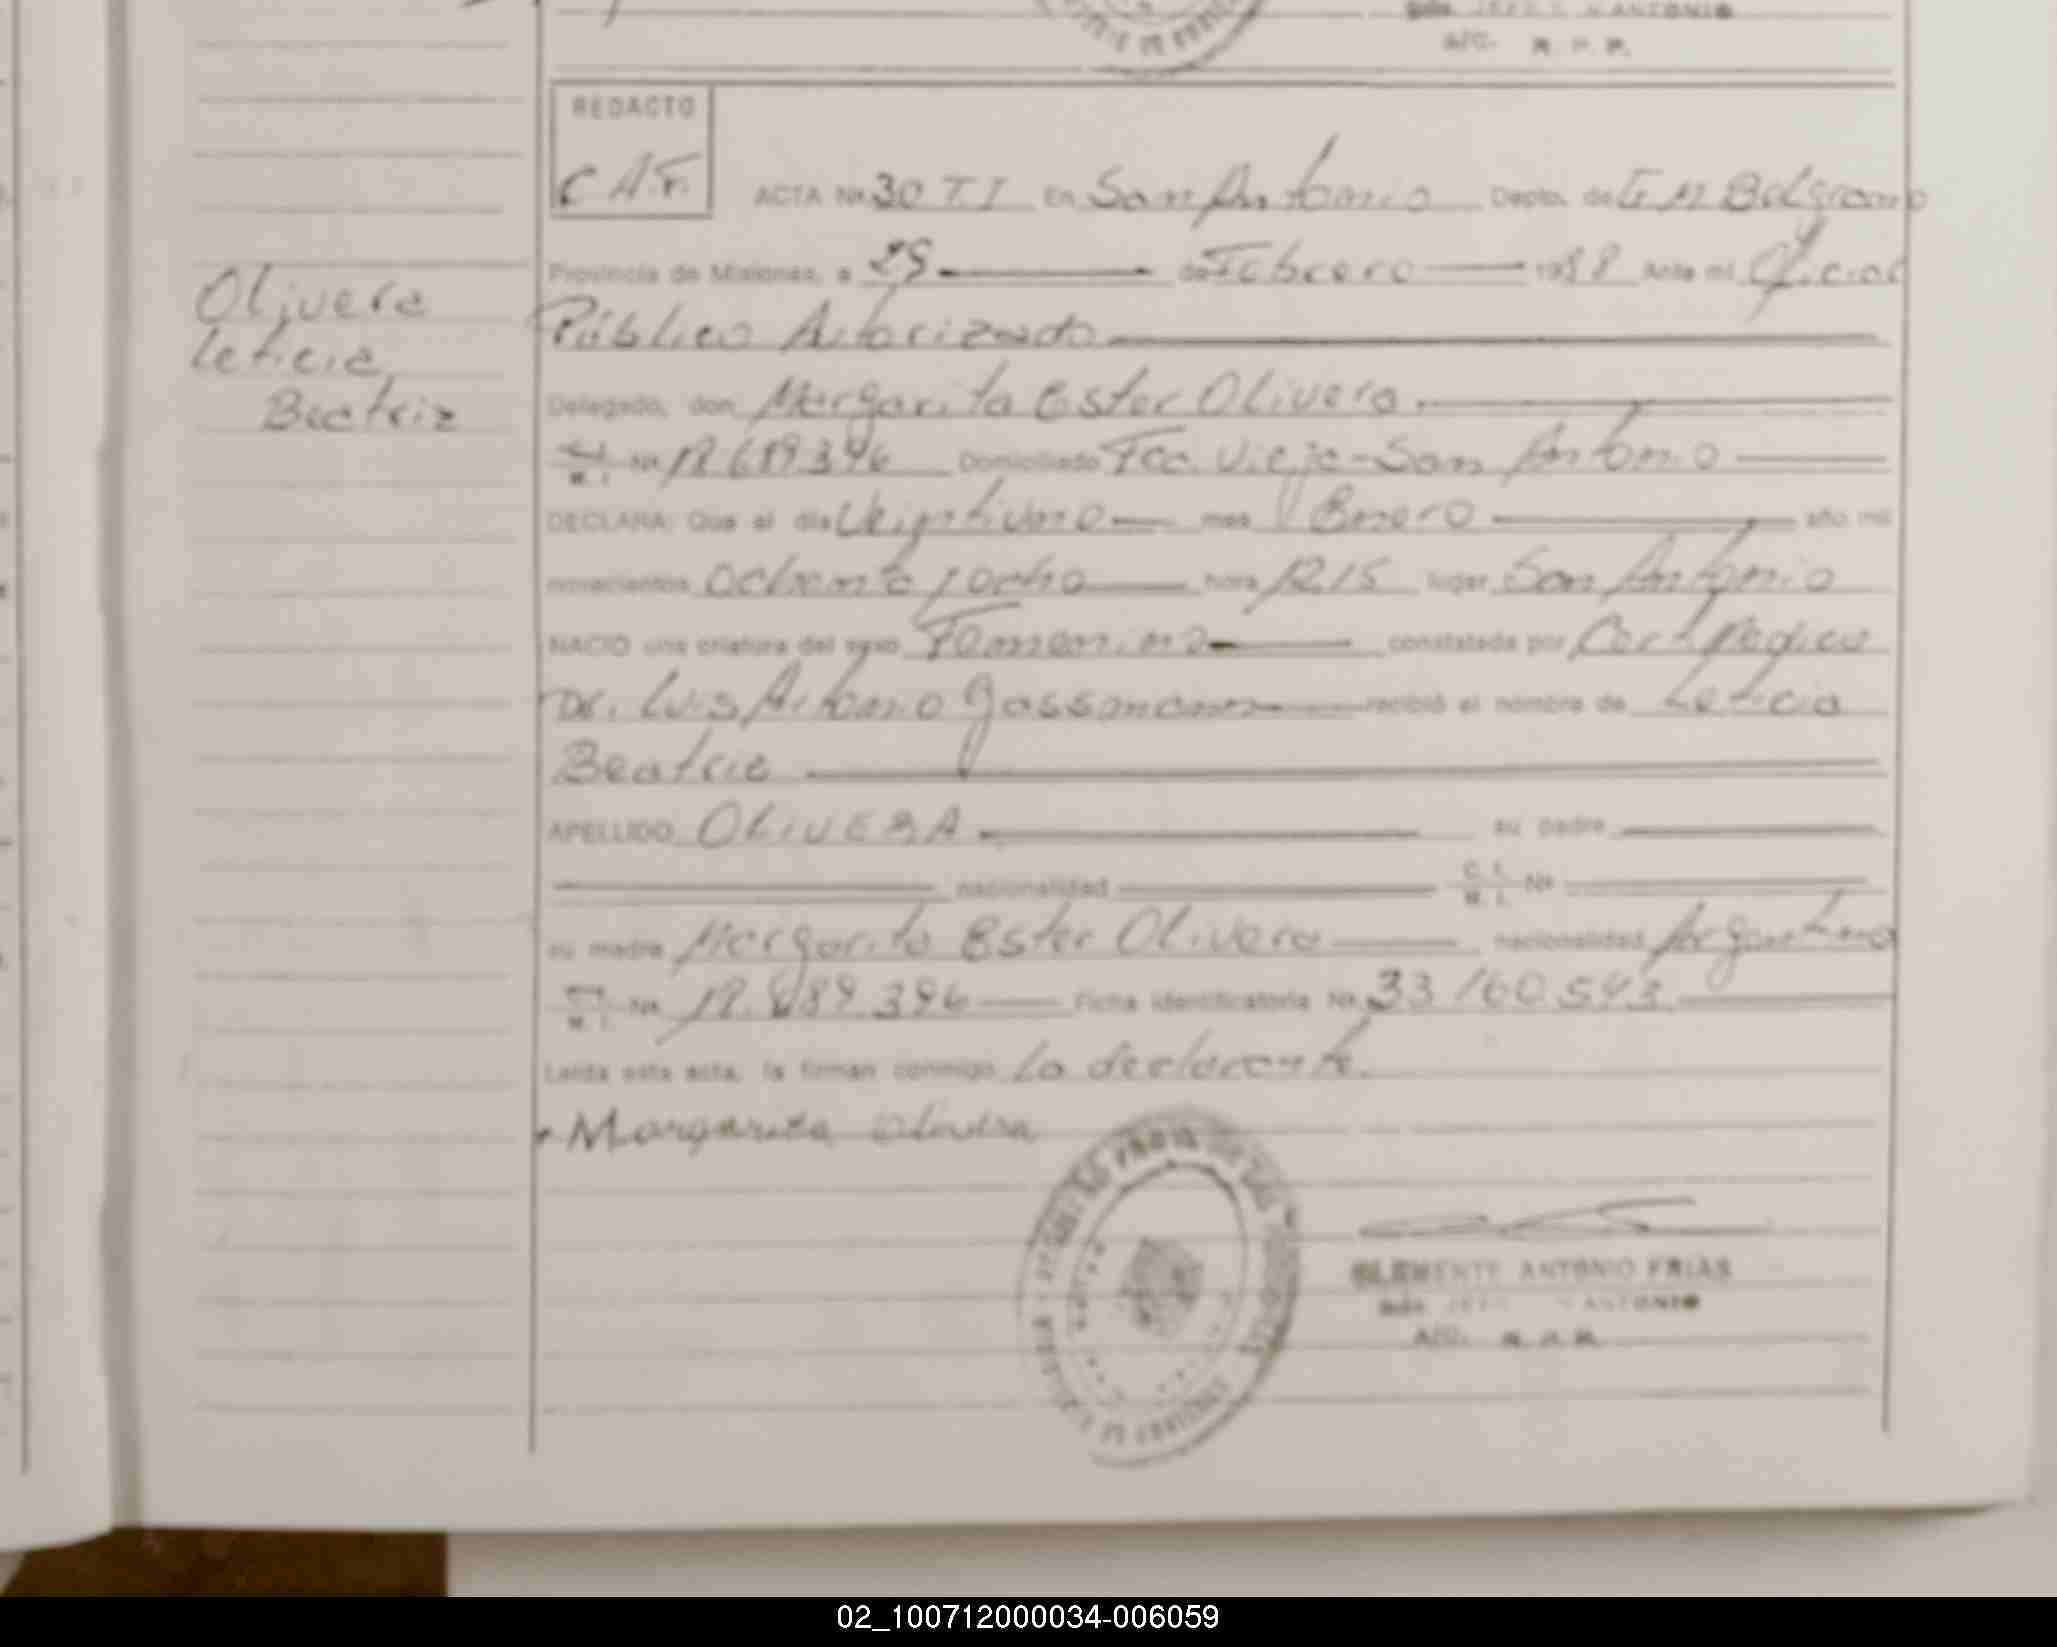 REDACTO
C A.F.
ACTA Nº 30 T I En San Antonio Depto. de G M Belgrano
Provincia de Misiones, a 29 de Febrero 1988 Ante mí Oficial
Público Autorizado
Delegado, don Margarita Ester Olivera.
M. I. Nº Domiciliado Fca. Vieja - San Antonio
DECLARA: Que el día Veintiuno mes Enero año mil
novecientos Ochenta y ocho hora 12,15 lugar San Antonio
NACIO una criatura del sexo Femenino constatada por Cert Medico
Dr. Luis Antonio recibió el nombre de Leticia
Beatriz
APELLIDO OLIVERA su padre
nacionalidad C. I. M. I. Nº
su madre Margarita Ester Olivera nacionalidad Argentina
M. I. Nº Ficha identificatoria Nº 33 160 543
Leída esta acta, la firman conmigo La declarante.
Margarita Olivera
CLEMENTE ANTONIO FRIAS
ANTONIO
Olivera
Leticia
Beatriz
02_100712000034-006059